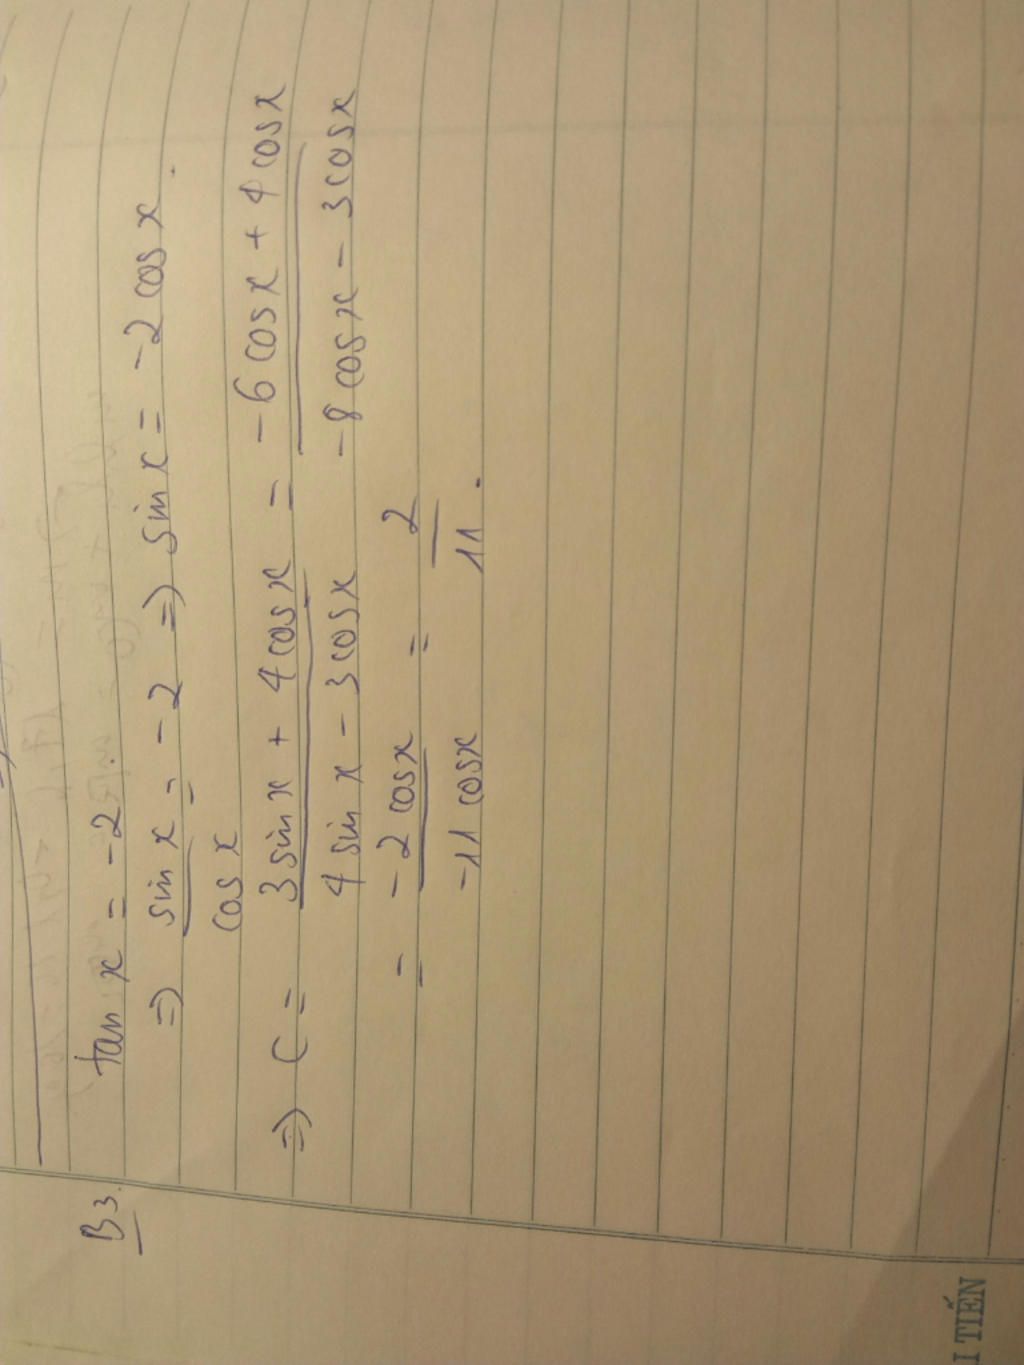 B3. tan x = -2.
=> sin x / cos x = -2 => sin x = -2 cos x.
=> C = (3 sin x + 4 cos x) / (4 sin x - 3 cos x) = (-6 cos x + 4 cos x) / (-8 cos x - 3 cos x)
= (-2 cos x) / (-11 cos x) = 2 / 11.
I TIẾN